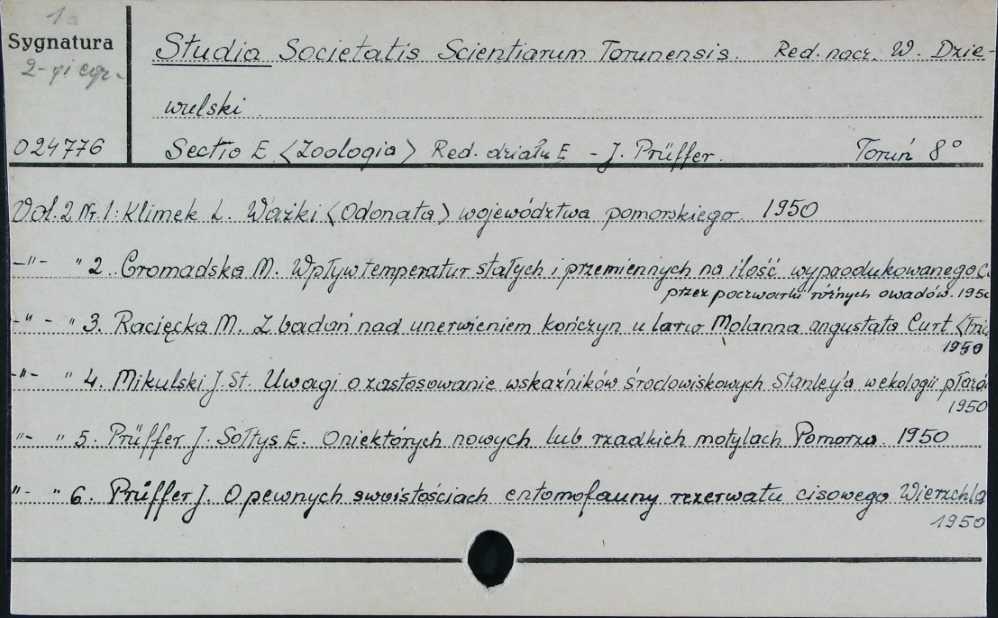 1a
Sygnatura
2-gi egz.
Studia Societatis Scientiarum Torunensis. Red. nacz. W. Dzie-
wulski.
024776
Sectio E <Zoologia> Red. działu E - J. Prüffer. Toruń 8°
Vol. 2 Nr 1: Klimek L. Ważki <Odonata> województwa pomorskiego. 1950
-"- " 2. Gromadska M. Wpływ temperatur stałych i przemiennych na ilość wyprodukowanego C
przez poczwarki różnych owadów. 1950
-"- " 3. Racięcka M. Z badań nad unerwieniem kończyn u larw Molanna angustata Curt <Tric
1950
-"- " 4. Mikulski J. St. Uwagi o zastosowanie wskaźników środowiskowych Stanley'a w ekologii płazó
1950
"- " 5. Prüffer J. Sołtys E. O niektórych nowych lub rzadkich motylach Pomorza. 1950
"- " 6. Prüffer J. O pewnych swoistościach entomofauny rezerwatu cisowego Wierzchla
1950